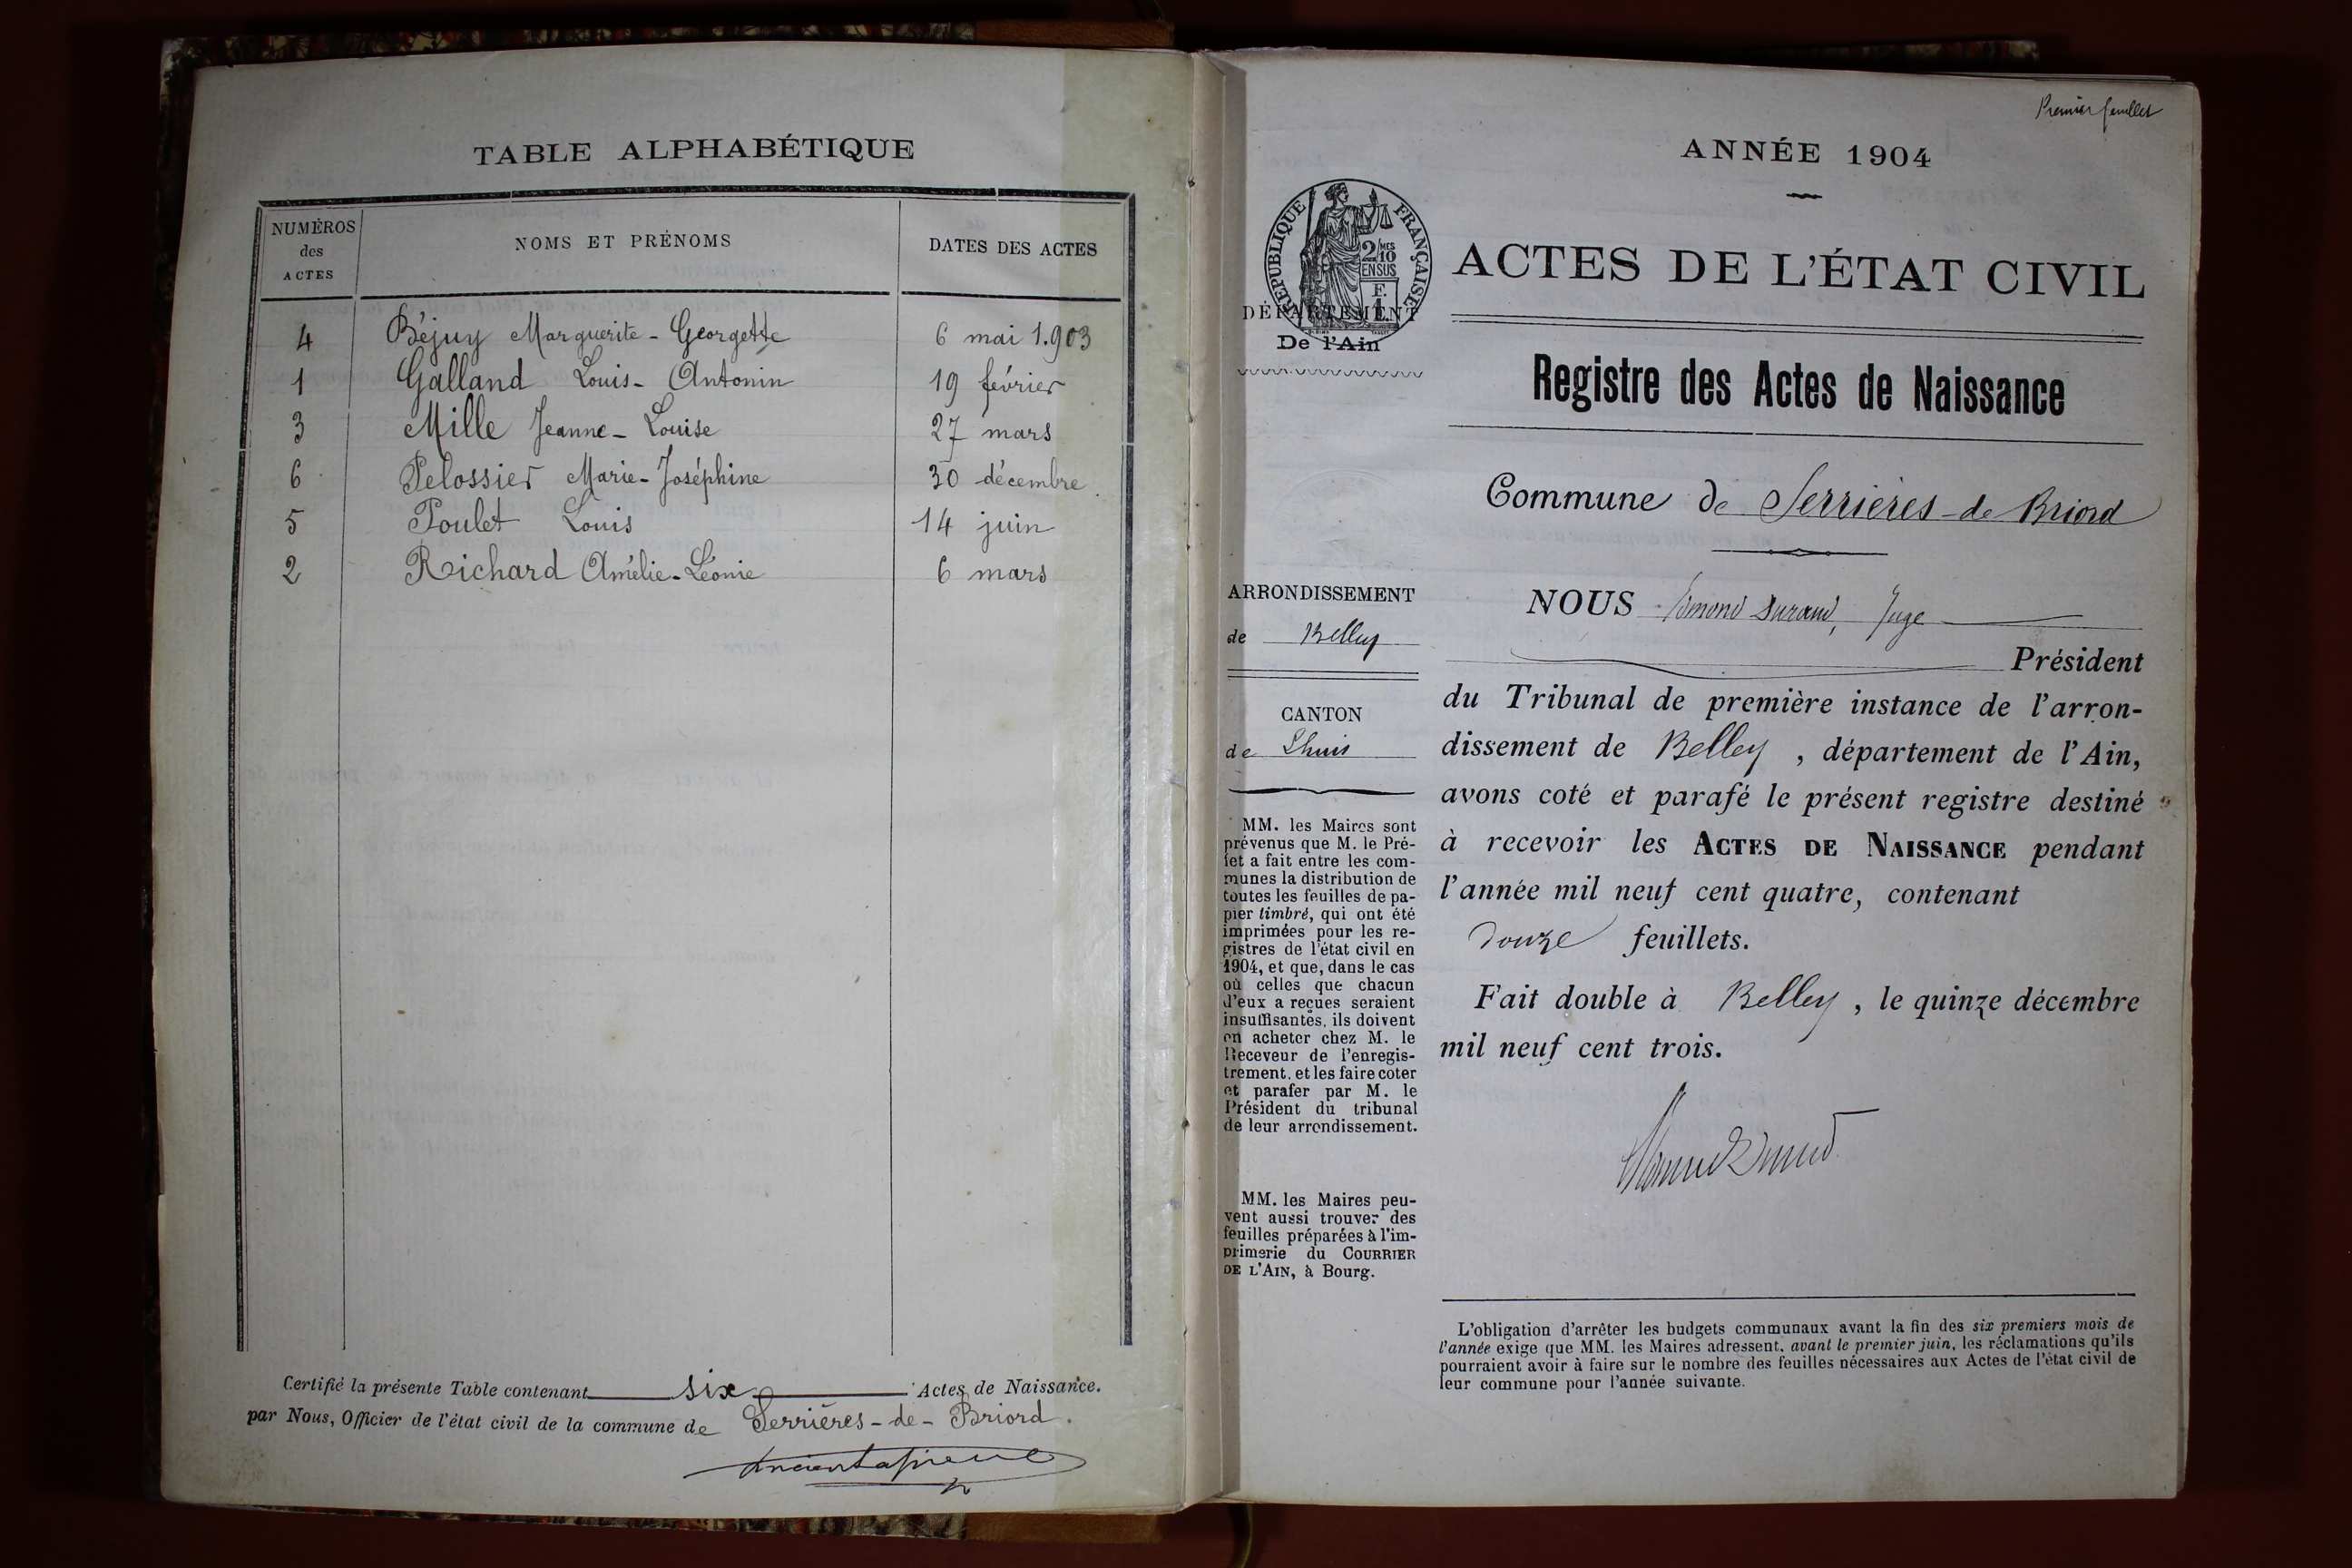 TABLE ALPHABÉTIQUE
NUMÉROS des ACTES
NOMS ET PRÉNOMS
DATES DES ACTES
4 Béjuy Marguerite-Georgette 6 mai 1.903
1 Galland Louis-Antonin 19 février
3 Mille Jeanne-Louise 27 mars
6 Pelossier Marie-Joséphine 30 décembre
5 Poulet Louis 14 juin
2 Richard Amélie-Léonie 6 mars
Certifié la présente Table contenant six Actes de Naissance.
par Nous, Officier de l'état civil de la commune de Serrières-de-Briord.
Premier feuillet
ANNÉE 1904
RÉPUBLIQUE FRANÇAISE
2/10 EN SUS
F.
1.
DÉPARTEMENT
De l'Ain
ACTES DE L'ÉTAT CIVIL
Registre des Actes de Naissance
Commune de Serrières-de-Briord
ARRONDISSEMENT
de Belley
CANTON
de Lhuis
MM. les Maires sont
prévenus que M. le Pré-
fet a fait entre les com-
munes la distribution de
toutes les feuilles de pa-
pier timbré, qui ont été
imprimées pour les re-
gistres de l'état civil en
1904, et que, dans le cas
où celles que chacun
d'eux a reçues seraient
insuffisantes, ils doivent
en acheter chez M. le
Receveur de l'enregis-
trement, et les faire coter
et parafer par M. le
Président du tribunal
de leur arrondissement.
MM. les Maires peu-
vent aussi trouver des
feuilles préparées à l'im-
primerie du COURRIER
DE L'AIN, à Bourg.
NOUS Edmond Durand, Juge
Président
du Tribunal de première instance de l'arron-
dissement de Belley, département de l'Ain,
avons coté et parafé le présent registre destiné
à recevoir les ACTES DE NAISSANCE pendant
l'année mil neuf cent quatre, contenant
douze feuillets.
Fait double à Belley, le quinze décembre
mil neuf cent trois.
L'obligation d'arrêter les budgets communaux avant la fin des six premiers mois de
l'année exige que MM. les Maires adressent, avant le premier juin, les réclamations qu'ils
pourraient avoir à faire sur le nombre des feuilles nécessaires aux Actes de l'état civil de
leur commune pour l'année suivante.